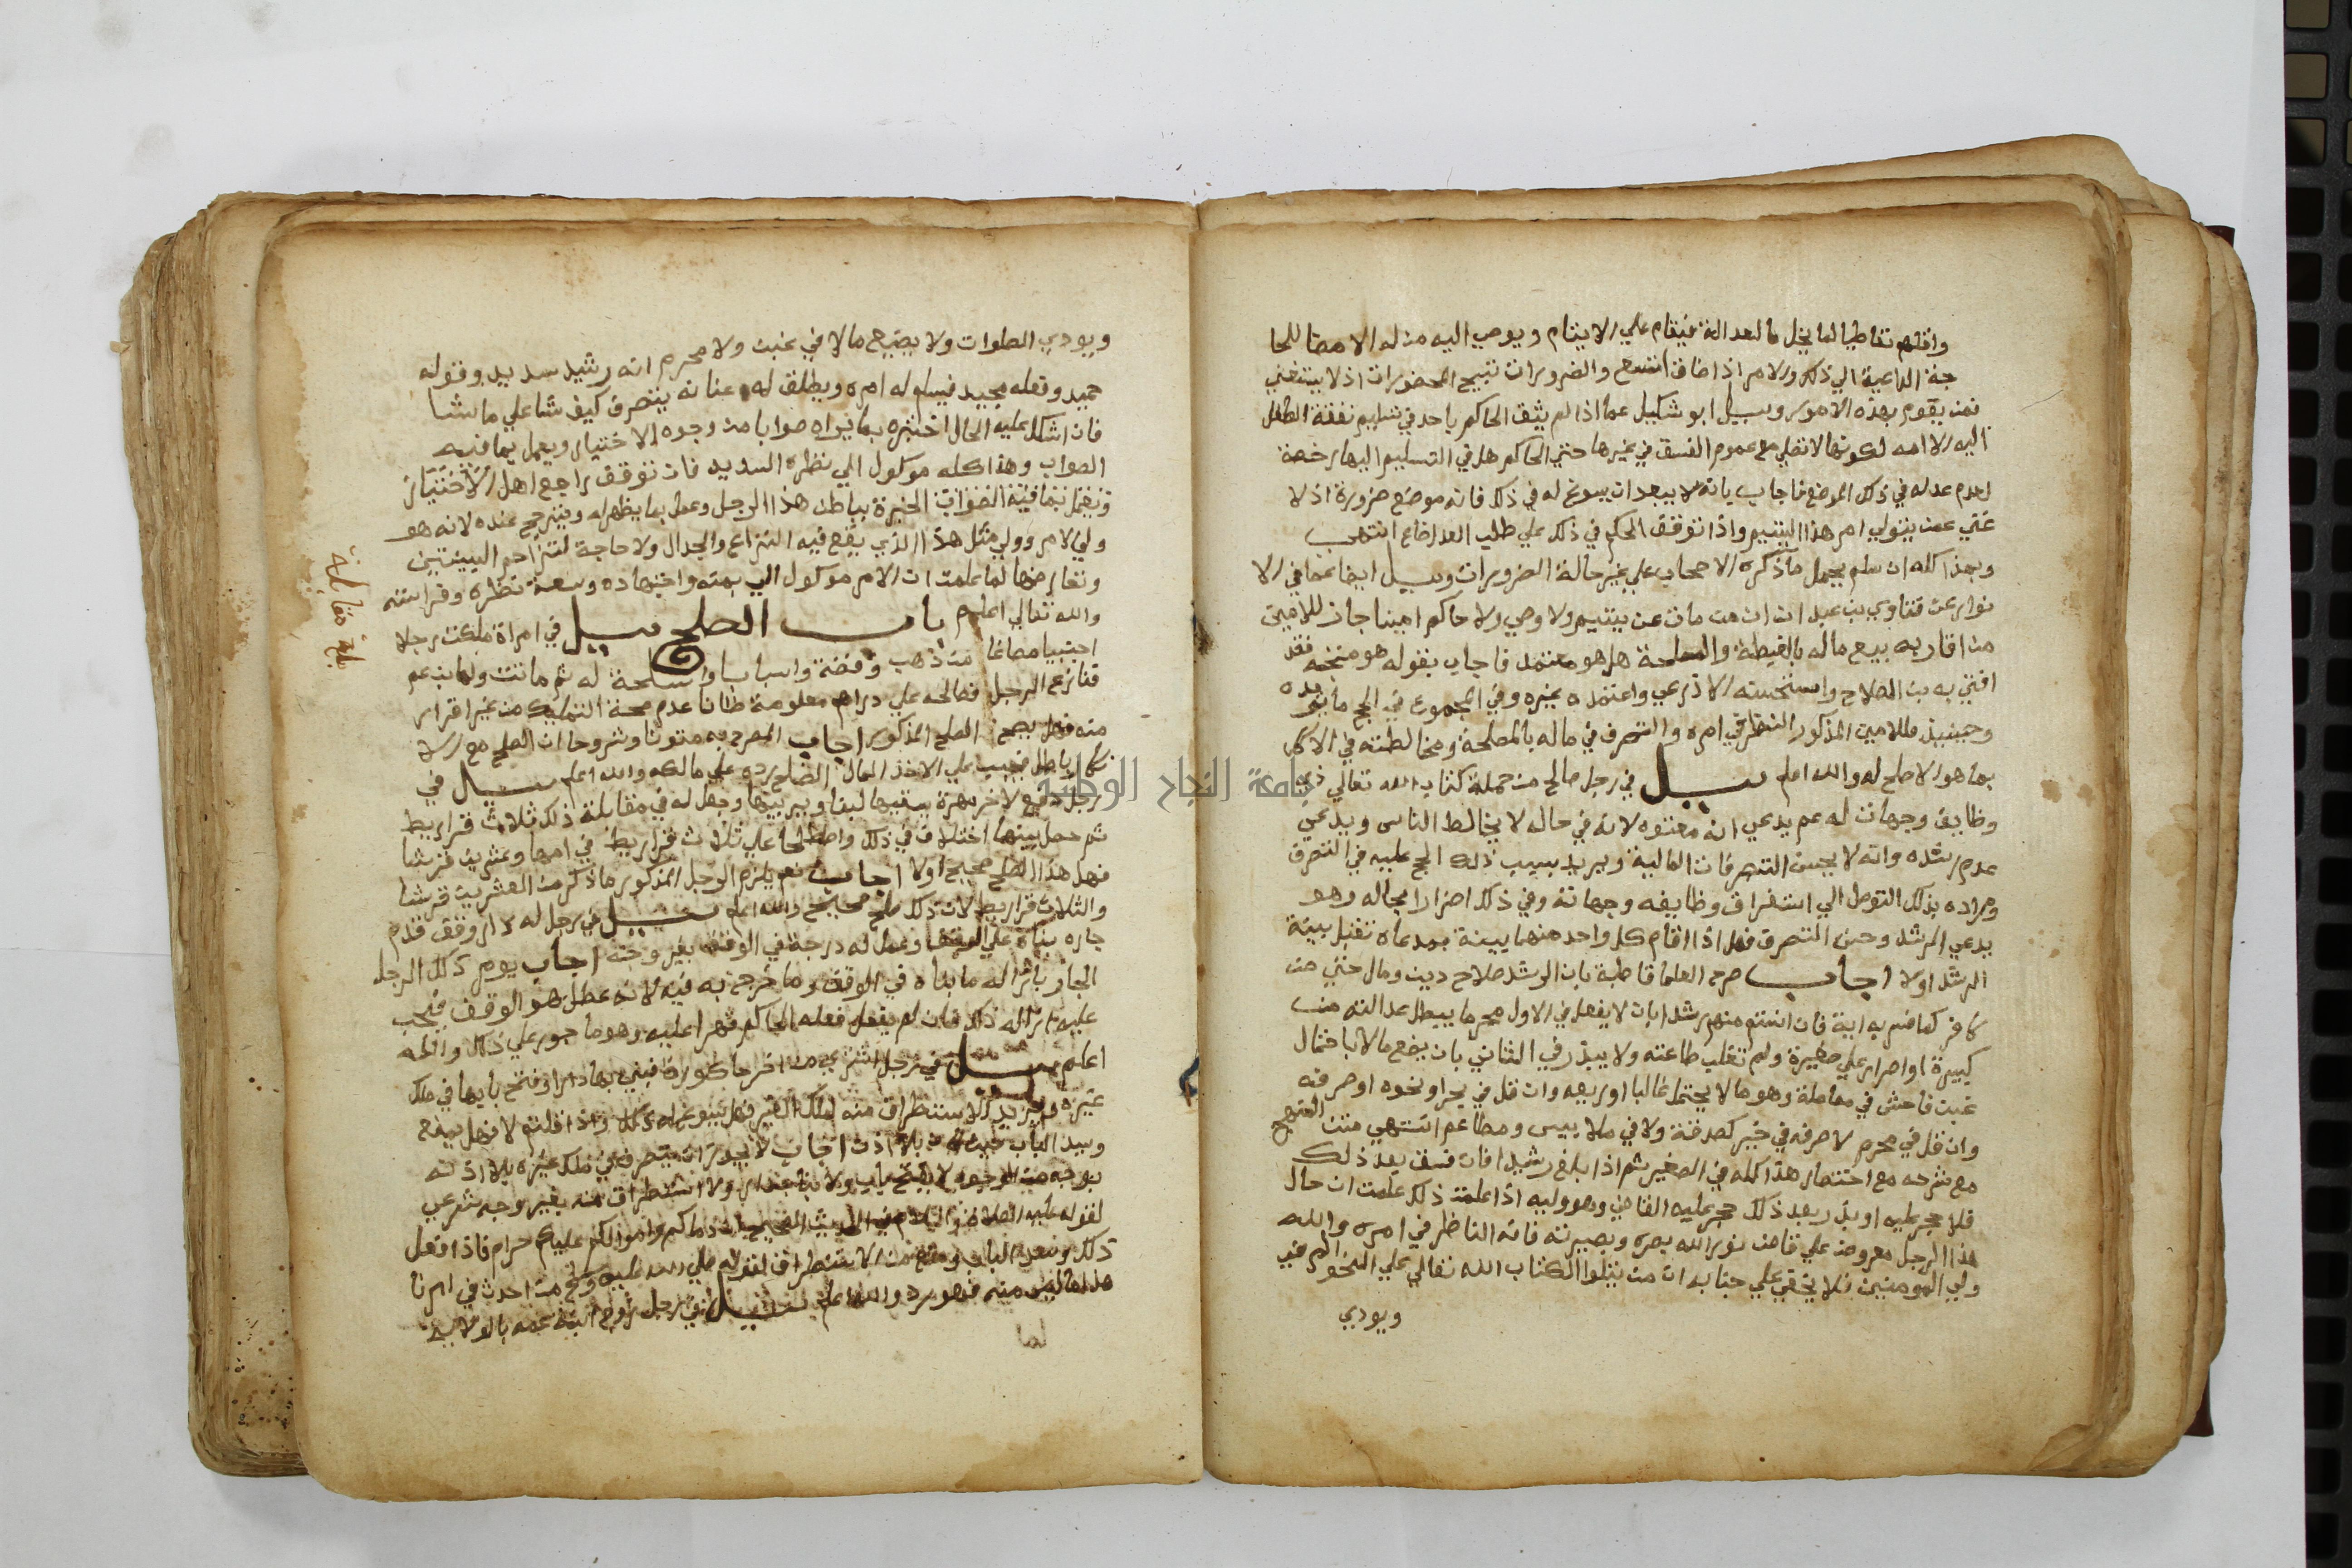 واقلهم تعاطيا لما يخل بالعدالة فيقام علي الايتام ويوصي اليه من له الامضا للحا
جة الداعية الي ذلك والامر اذا ضاق اتسع والضرورات تبيح المحضورات اذ لا يستغني
عمن يقوم بهذه الامور وسيل ابو شكيل عما اذا لم يثق الحاكم باحد في تسليم نفقة الطفل
اليه الا امه لكونها لا تصلي مع عموم الفسق في غيرها حتي الحاكم هل في التسليم اليها رخصة
لعدم عدله في ذلك الموضع فاجاب بانه لا يبعد ان يسوغ له في ذلك فانه موضع ضرورة اذ لا
غني عمن يتولي امر هذا اليتيم واذا توقف الحكم في ذلك علي طلب العدل ضاع انتهي
وبهذا كله ان سلم يحمل ما ذكره الاصحاب علي غير حالة الضرورات وسيل ايضا عما في الا
نوار عن فتاوي بن عبد ان من مات عن يتيم ولا وصي ولا حاكم امينا جاز للامين
من اقاربه بيع ماله بالغبطة والمصلحة هل هو معتمد فاجاب بقوله هو متجه فقد
افتي به بن الصلاح واستحسنه الاذرعي واعتمده غيره وفي المجموع في الحج ما يؤيده
وحينيذ فللامين المذكور النظر في امره والتصرف في ماله بالمصلحة ومخالطته في الاكل
بما هو الاصلح له والله اعلم سيل في رجل صالح من حملة كتاب الله تعالي ذي
وظايف وجهات له عم يدعي انه معتوه لانه في حاله لا يخالط الناس ويدعي
عدم رشده وانه لا يحسن التصرفات المالية ويريد بسبب ذلك الحجر عليه في التصرف
ومراده بذلك التوصل الي استغراق وظايفه وجهاته وفي ذلك اضرار بحاله وهو
يدعي الرشد وحسن التصرف فهل اذا اقام كل واحد منهما بينة بمدعاه تقبل بينة
الرشد اولا اجاب صرح العلما قاطبة بان الرشد صلاح دين ومال حتي من
كافر كما فسر به اية فان انستم منهم رشدا بان لا يفعل في الاول محرما يبطل عدالته من
كبيرة او اصرار علي صغيرة ولم تغلب طاعته ولا يبذر في الثاني بان يضيع مالا باحتمال
غبن فاحش في معاملة وهو ما لا يحتمل غالبا او ريعه وان قل في بحر او نحوه او صرفه
وان قل في محرم لا صرفه في خير كصدقة ولا في ملابس ومطاعم انتهي متن المنهج
مع شرحه مع اختصار هذا كله في الصغير ثم اذا بلغ رشيدا فان فسق بعد ذلك
فلا حجر عليه او بذر بعد ذلك حجر عليه القاضي وهو وليه اذا علمت ذلك علمت ان حال
هذا الرجل معروض علي قاض نور الله بصره وبصيرته فانه الناظر في امره والله
ولي المومنين فلا يخفي علي جنابه ان من يتلوا الكتاب الله تعالي علي النحو المرضي
ويودي
ويودي الصلوات ولا يضيع مالا في غبن ولا محرم انه رشيد سديد وقوله
حميد وفعله مجيد فيسلم له امره ويطلق له عنانه يتصرف كيف شا علي ما شا
فان اشكل عليه الحال اختبره بما يراه صوابا من وجوه الاختيار ويعمل بما فيه
الصواب وهذا كله موكول الي نظره السديد فان توقف راجع اهل الاختيار
الخبرة بباطن هذا الرجل وعمل بما يظهر له ويترجح عنده لانه هو
ولي الامر وولي مثل هذا الذي يقع فيه النزاع والجدال ولا حاجة لتزاحم البينتين
وتعارضها لما علمت ان الامر موكول الي همته واجتهاده وسعة نظره وفراسته
والله تعالي اعلم باب الصلح سيل في امراة ملكت رجلا
اجنبيا مصاغا من ذهب وفضة واسبابا واسلحة له ثم ماتت ولها بن عم
فنازع الرجل فصالحه علي دراهم معلومة ظانا عدم صحة التمليك من غير اقرار
منه فهل يصح الصلح المذكور اجاب المصرح به متونا وشروحا ان الصلح مع الا
نكار باطل فيجب علي الاخذ المال الصلح رده علي مالكه والله اعلم سيل في
رجل دفع لاخر مهرة يسقيها لبنا ويربيها وجعل له في مقابلة ذلك ثلاث قراريط
ثم حصل بينهما اختلاف في ذلك واصطلحا علي ثلاث قراريط في امها وعشرين قرشا
فهل هذا الصلح صحيح اولا اجاب نعم يلزم الرجل المذكور ما ذكر من العشرين قرشا
والثلاث قراريط لان ذلك صلح صحيح والله اعلم سيل في رجل له دار وقف قدم
جاره بناه علي الوقف وعمل له درجة في الوقف بغير وجه اجاب يومر ذلك الرجل
الجار بازالة ما بناه في الوقف وما خرج به فيه لانه عطل هو الوقف فيجب
عليه ازالة ذلك فان لم يفعل فعله الحاكم قهرا عليه وهو ماجور علي ذلك والله
اعلم سيل في رجل اشتري من اخر حاكورة فبني بها دارا وفتح بابها في ملك
غيره ويريد الاستطراق منه لملك الغير فهل يسوغ له ذلك واذا قلتم لا فهل يمنع
ويسد الباب حيث كان بلا اذن اجاب لا يجوز ان يتصرف في ملك غيره بلا اذنه
بوجه من الوجوه لا بفتح باب ولا بنا جدار ولا استطراق منه بغير وجه شرعي
لقوله عليه الصلاة والسلام في الحديث الصحيح ان دماكم واموالكم عليكم حرام فاذا فعل
ذلك وفتح الباب ومنع من الاستطراق لقوله صلي الله عليه وسلم من احدث في امرنا
هذا ما ليس منه فهو رد والله اعلم سيل في رجل زوج ابنة عمه بالولاية
لما
بلغ مقابلة
جامعة النجاح الوطنية